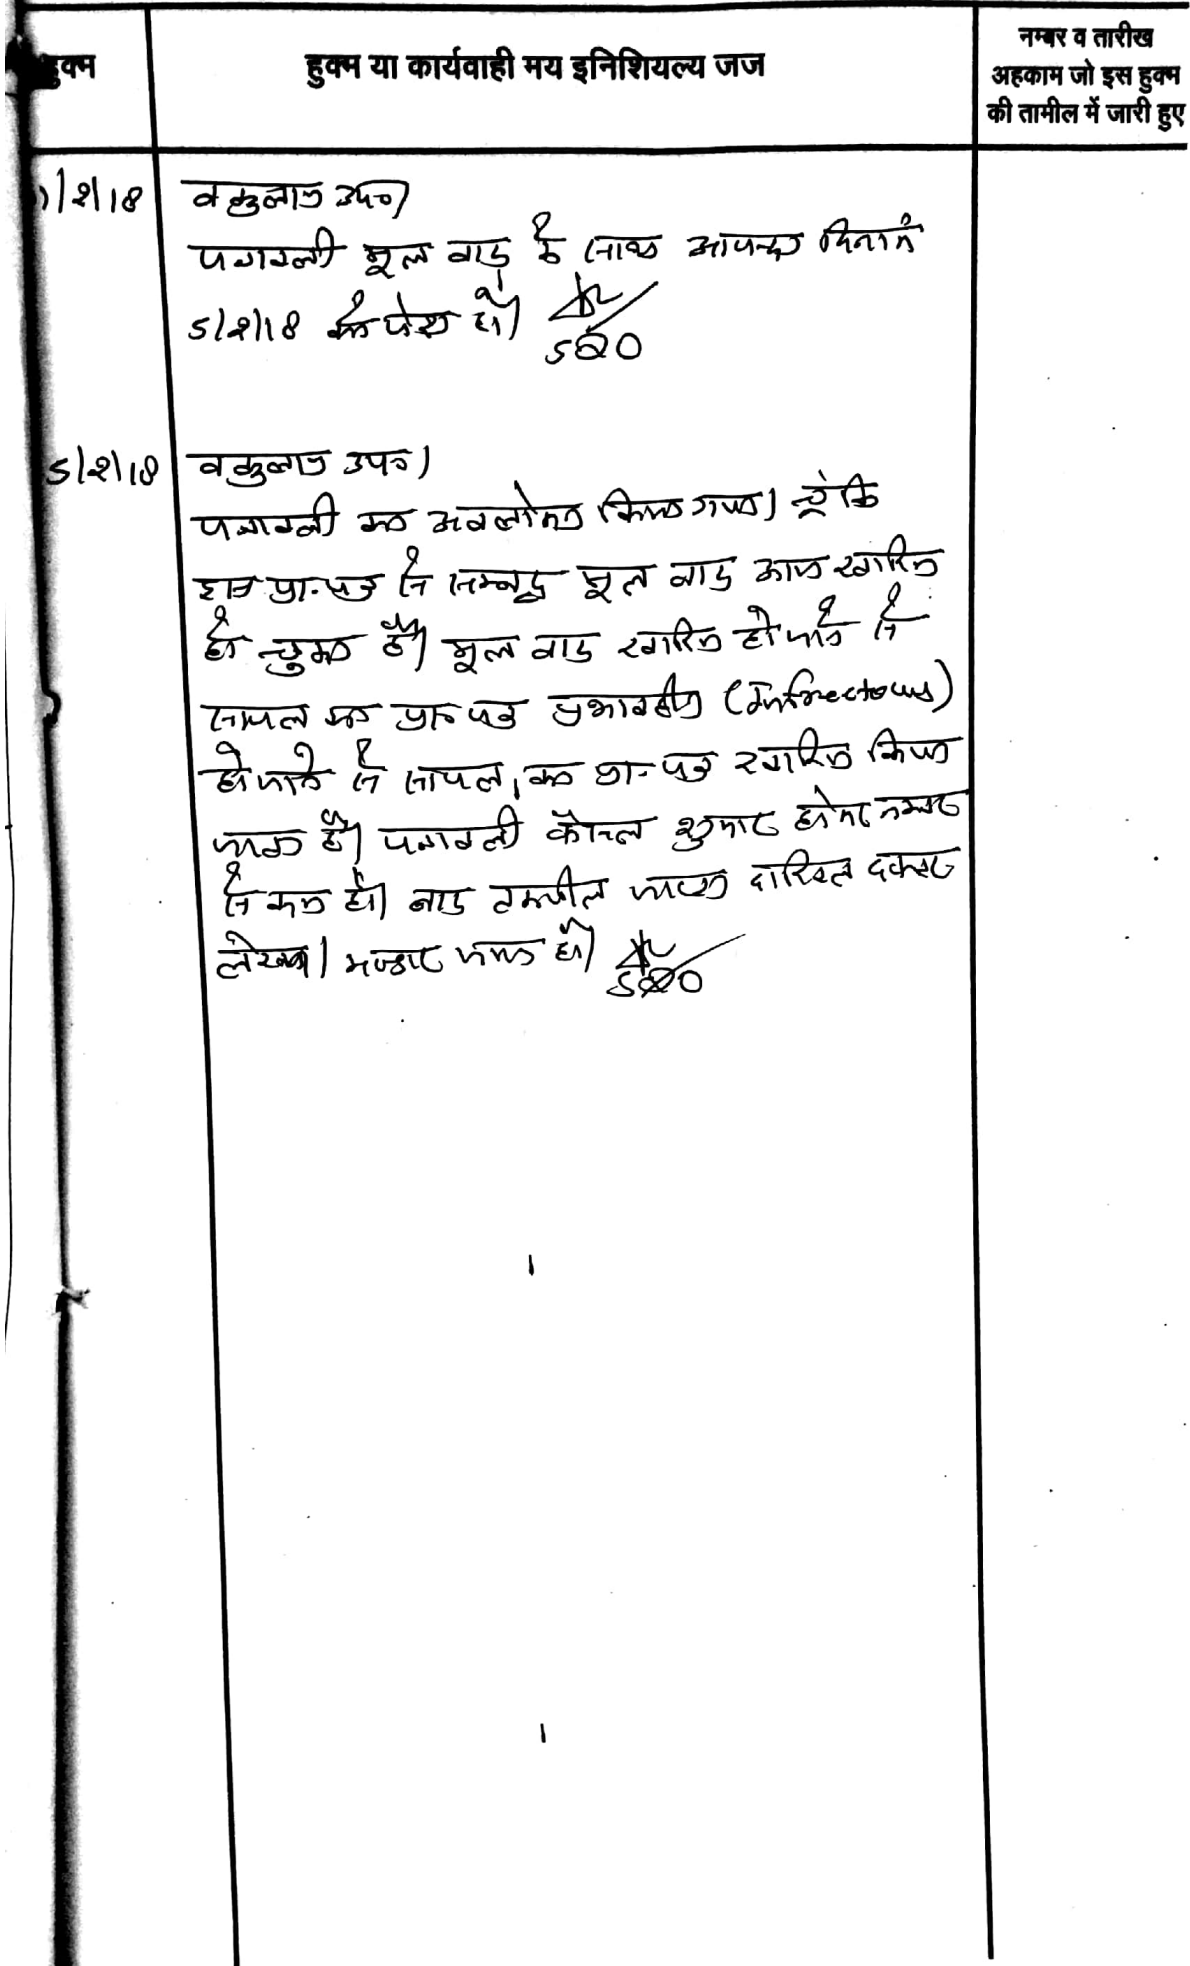 हुक्म
हुक्म या कार्यवाही मय इनिशियल्य जज
नम्बर व तारीख
अहकाम जो इस हुक्म
की तामील में जारी हुए
/2/18
वकुलाय उप०।
पत्रावली मूल वाद के साथ आयन्दा दिनांक
5/2/18 को पेश हो।
SDO
5/2/18
वकुलाय उप०।
पत्रावली का अवलोकन किया गया। चूंकि
हाल प्रा.पत्र से सम्बद्ध मूल वाद आज खारिज
हो चुका है। मूल वाद खारिज हो जाने से
सायल का प्रा० पत्र प्रभावहीन (Infructous)
हो जाने से सायल का प्रा- पत्र खारिज किया
जाता है। पत्रावली फैसल शुमार होकर नम्बर
से कम हो। बाद तकमील जाप्ता दाखिल दफ्तर
लेखा भण्डार जमा हो।
SDO